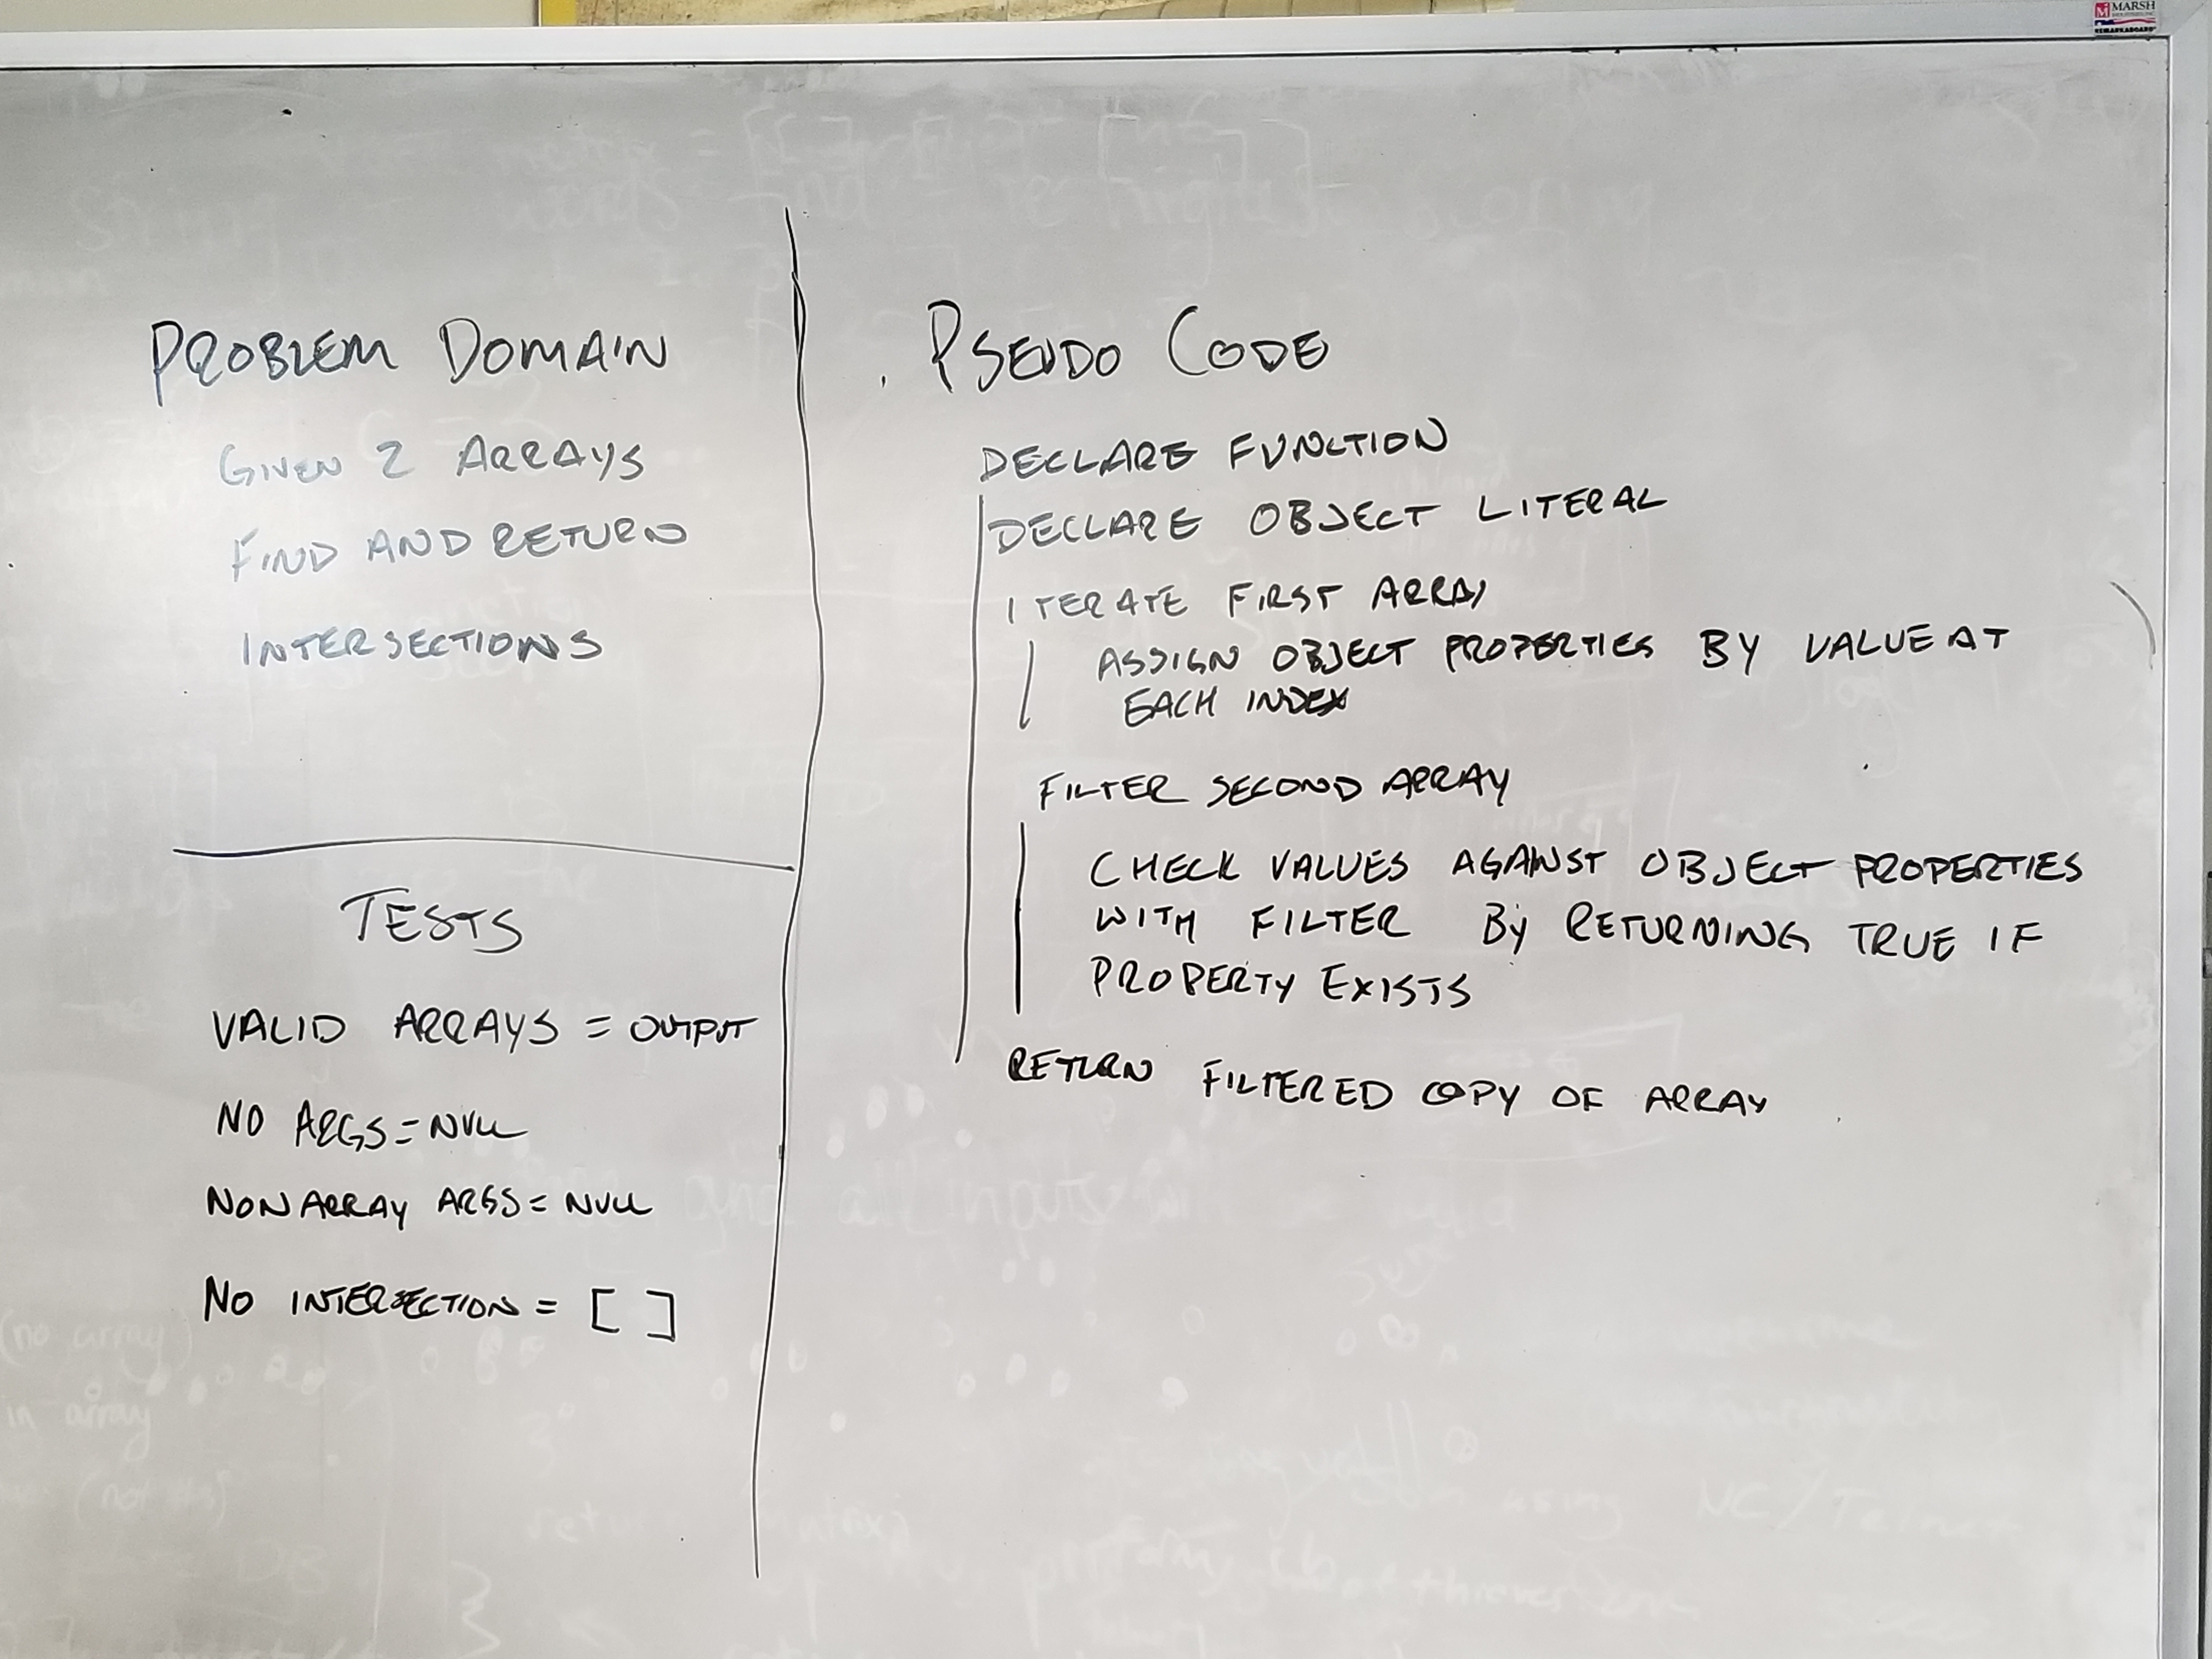 MARSH
PROBLEM DOMAIN
GIVEN 2 ARRAYS
FIND AND RETURN
INTERSECTIONS
TESTS
VALID ARRAYS = OUTPUT
NO ARGS = NULL
NON ARRAY ARGS = NULL
NO INTERSECTION = [ ]
PSEUDO CODE
DECLARE FUNCTION
DECLARE OBJECT LITERAL
ITERATE FIRST ARRAY
ASSIGN OBJECT PROPERTIES BY VALUE AT
EACH INDEX
FILTER SECOND ARRAY
CHECK VALUES AGAINST OBJECT PROPERTIES
WITH FILTER BY RETURNING TRUE IF
PROPERTY EXISTS
RETURN FILTERED COPY OF ARRAY
(no array)
in array
using NC/Telnet